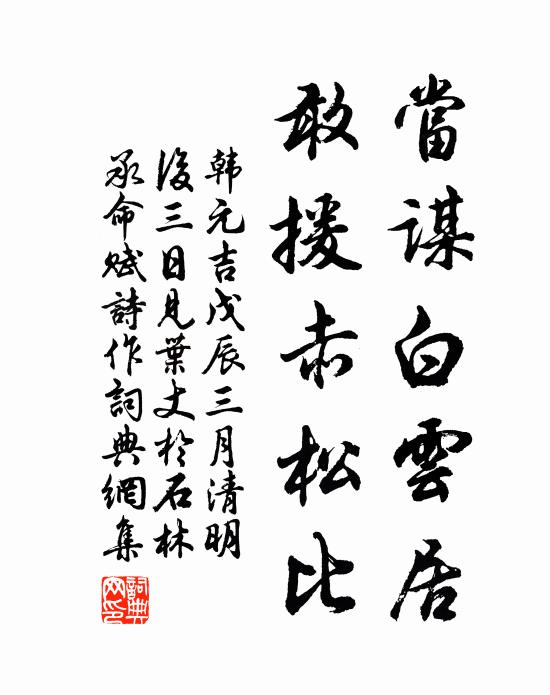 當謀白雲居
敢援赤松比
韩元吉戊辰三月清明
後三日見葉丈於石林
承命赋詩作詞典網集
詞典網印